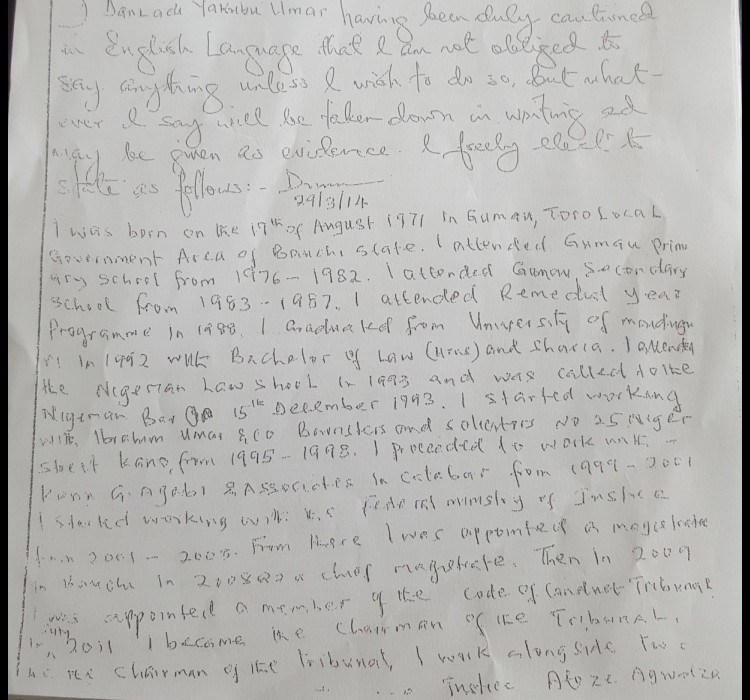 ) Danladi Yakubu Umar having been duly cautioned
in English Language that I am not obliged to
say anything unless I wish to do so, but what-
ever I say will be taken down in writing and
may be given as evidence. I freely elect to
state as follows:-
29/3/14
I was born on the 17th of August 1971 in Gumau, Toro Local
Government Area of Bauchi State. I attended Gumau Prim
ary School from 1976 - 1982. I attended Gumau, Secondary
School from 1983 - 1987. I attended Remedial year
Programme in 1988. I Graduated from University of maidugu
ri in 1992 with Bachelor of Law (Hons) and Sharia. I attended
the Nigerian Law School in 1993 and was called to the
Nigerian Bar on 15th December 1993. I started working
with Ibrahim Umar & CO Barristers and solicitors NO 25 Niger
street Kano, from 1995 - 1998. I proceeded to work with -
Kanu G. Agabi & Associates in Calabar from 1999 - 2001
I started working with the Federal ministry of Justice
from 2001 - 2005. From there I was appointed a magistrate
in Bauchi in 2008 a chief magistrate. Then in 2009
I was appointed a member of the Code of Conduct Tribunal
in July 2011 I became the Chairman of the Tribunal.
As the Chairman of the Tribunal, I work alongside two
Justice Atoze Agwadza